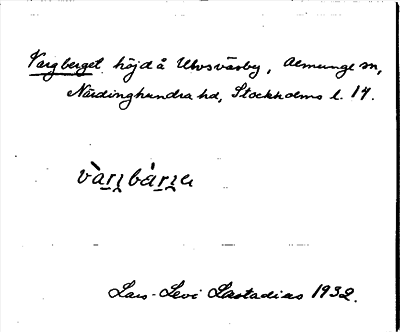 Vargberget. höjd å Ulvsväsby, Almunge sn,
Närdinghundra hd, Stockholms l. 14.
Lars-Levi Læstadius 1932.